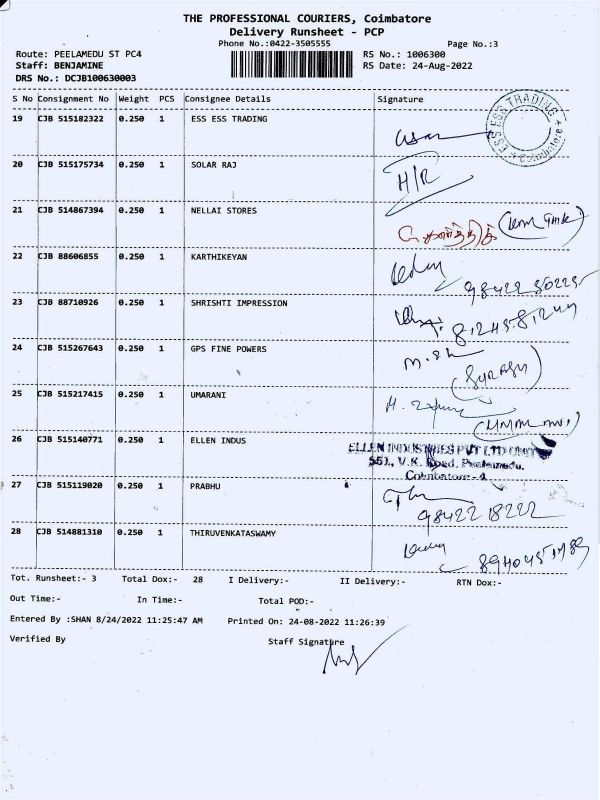 THE PROFESSIONAL COURIERS, Coimbatore
Delivery Runsheet - PCP
Phone No.:0422-3505555
Page No.:3
Route: PEELAMEDU ST PC4
RS No.: 1006300
Staff: BENJAMINE
RS Date: 24-Aug-2022
DRS No.: DCJB100630003
S No Consignment No Weight PCS Consignee Details Signature
19 CJB 515182322 0.250 1 ESS ESS TRADING
ESS ESS TRADING * Coimbatore *
20 CJB 515175734 0.250 1 SOLAR RAJ
H/R
21 CJB 514867394 0.250 1 NELLAI STORES
22 CJB 88606855 0.250 1 KARTHIKEYAN
98422 50225
23 CJB 88710926 0.250 1 SHRISHTI IMPRESSION
24 CJB 515267643 0.250 1 GPS FINE POWERS
25 CJB 515217415 0.250 1 UMARANI
26 CJB 515140771 0.250 1 ELLEN INDUS
ELLEN INDUSTRIES PVT LTD UNIT
551, V.K. Road, Peelamedu,
Coimbatore - 4
27 CJB 515119020 0.250 1 PRABHU
98422 18222
28 CJB 514881310 0.250 1 THIRUVENKATASWAMY
Tot. Runsheet:- 3 Total Dox:- 28 I Delivery:- II Delivery:- RTN Dox:-
Out Time:- In Time:- Total POD:-
Entered By :SHAN 8/24/2022 11:25:47 AM Printed On: 24-08-2022 11:26:39
Verified By Staff Signature